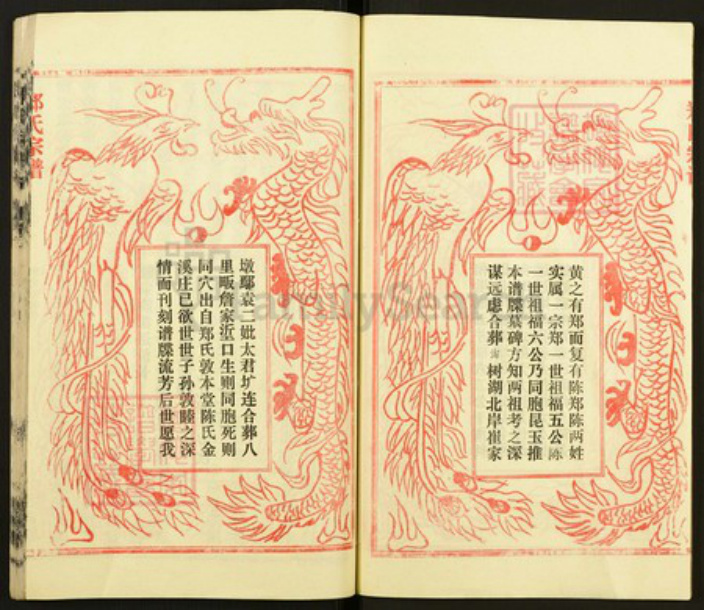 黄之有郑而复有陈郑陈两姓
实属一宗郑一世祖福五公陈
一世祖福六公乃同胞昆玉推
本谱牒墓碑方知两祖考之深
谋远虑合葬 树湖北岸崔家
墩鄢袁二妣太君圹连合葬八
里畈詹家垢口生则同胞死则
同穴出自郑氏敦本堂陈氏金
溪庄已欲世世子孙敦睦之深
情而刊刻谱牒流芳后世愿我
郑氏宗谱
FamilySearch